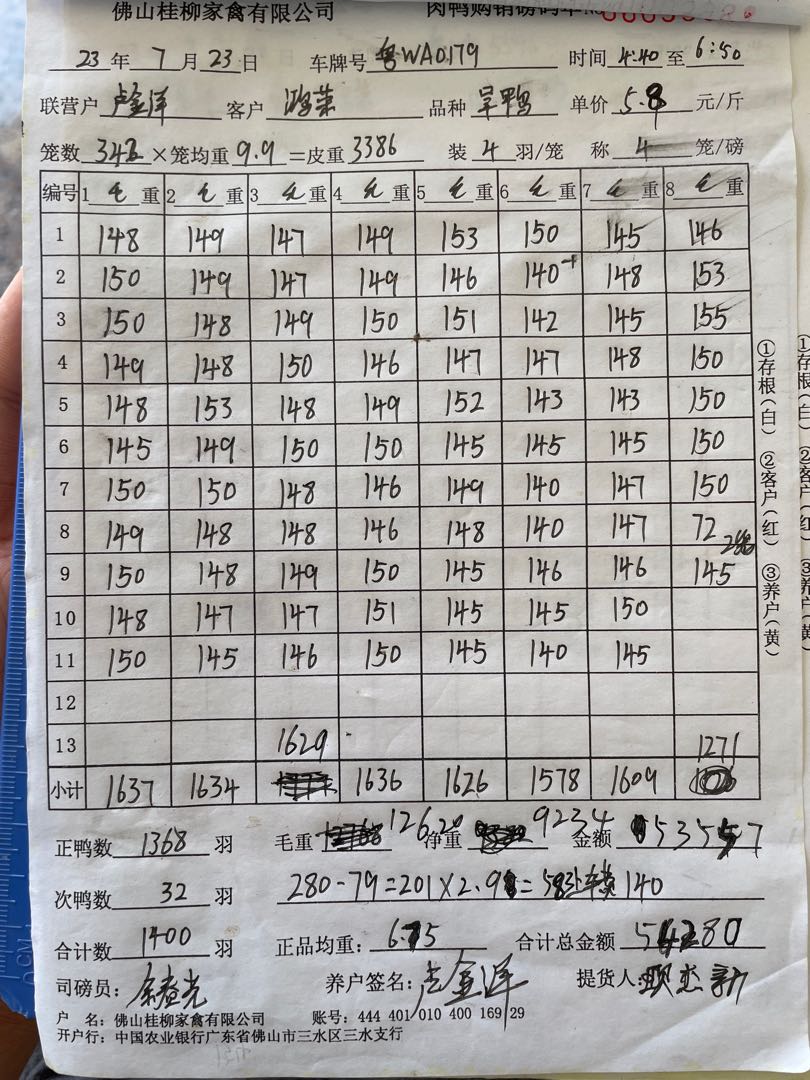 佛山桂柳家禽有限公司 肉鸭购销磅码单No
23年7月23日 车牌号 粤WA0179 时间 4:40至6:50
联营户 卢金洋 客户 鸿荣 品种 旱鸭 单价 5.8 元/斤
笼数 342 ×笼均重 9.9 =皮重 3386 装 4 羽/笼 称 4 笼/磅
编号 1 毛 重 2 毛 重 3 毛 重 4 毛 重 5 毛 重 6 毛 重 7 毛 重 8 毛 重
1 148 149 147 149 153 150 145 146
2 150 149 147 149 146 140 148 153
3 150 148 149 150 151 142 145 155
4 149 148 150 146 147 147 148 150
5 148 153 148 149 152 143 143 150
6 145 149 150 150 145 145 145 150
7 150 150 148 146 149 140 147 150
8 149 148 148 146 148 140 147 72
9 150 148 149 150 145 146 146 145
10 148 147 147 151 145 145 150
11 150 145 146 150 145 140 145
12
13 1629 1271
小计 1637 1634 1636 1626 1578 1609
正鸭数 1368 羽 毛重 12620 净重 9234 金额 53557
次鸭数 32 羽 280-79=201×2.9= 140
合计数 1400 羽 正品均重: 6.75 合计总金额 54280
司磅员: 养户签名: 卢金洋 提货人:
户 名: 佛山桂柳家禽有限公司 账号: 444 401 010 400 169 29
开户行: 中国农业银行广东省佛山市三水区三水支行
①存根(白) ②客户(红) ③养户(黄)
①存根(白) ②客户(红) ③养户(黄)